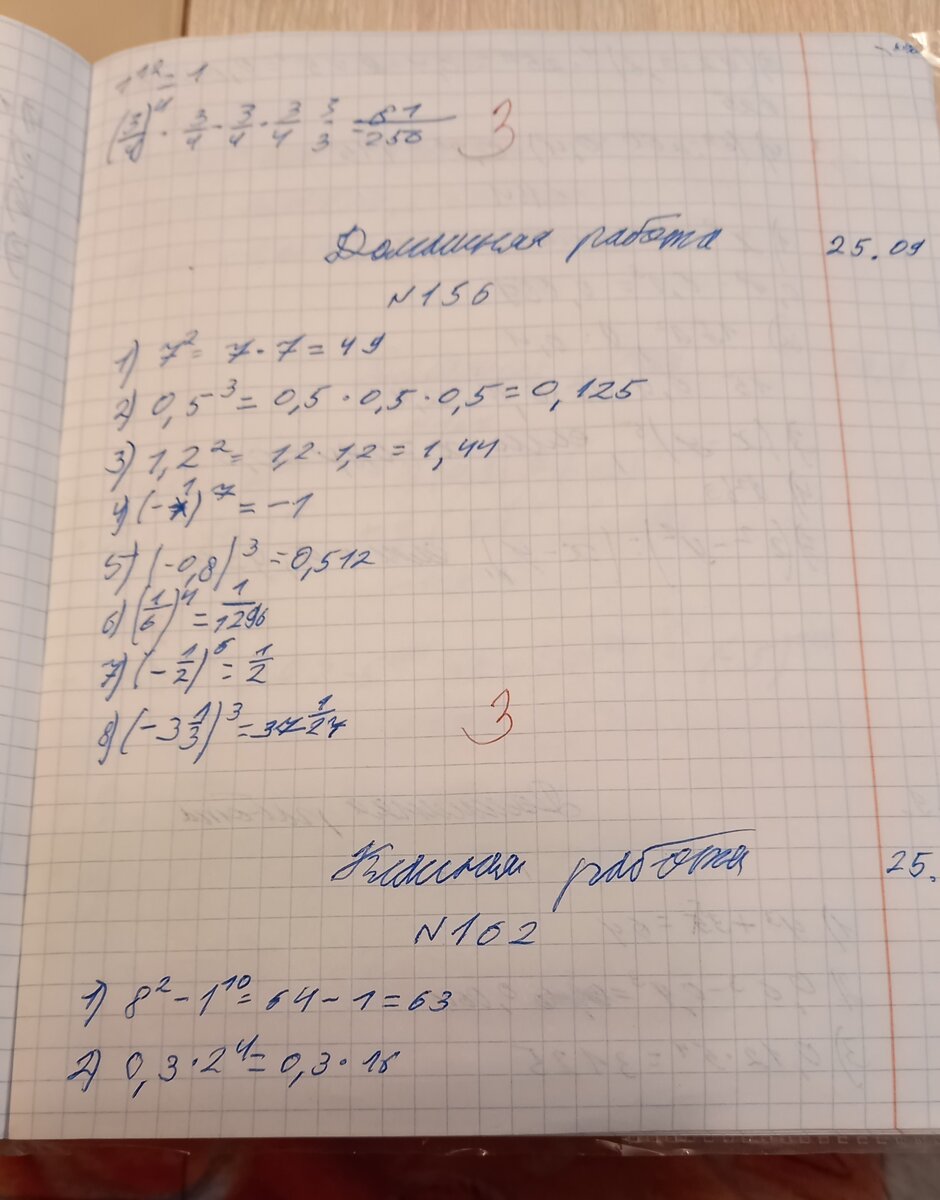 1¹² = 1
(3/4)⁴ · 3/4 · 3/4 · 3/4 3/3 = 81/256 3
Домашняя работа 25.09
№156
1) 7² = 7 · 7 = 49
2) 0,5³ = 0,5 · 0,5 · 0,5 = 0,125
3) 1,2² = 1,2 · 1,2 = 1,44
4) (-1)⁷ = -1
5) (-0,8)³ = 0,512
6) (1/6)⁴ = 1/1296
7) (-1/2)⁶ = 1/2
8) (-3 1/3)³ = 37 1/27
3
Класная работа 25.
№162
1) 8² - 1¹⁰ = 64 - 1 = 63
2) 0,3 · 2⁴ = 0,3 · 16